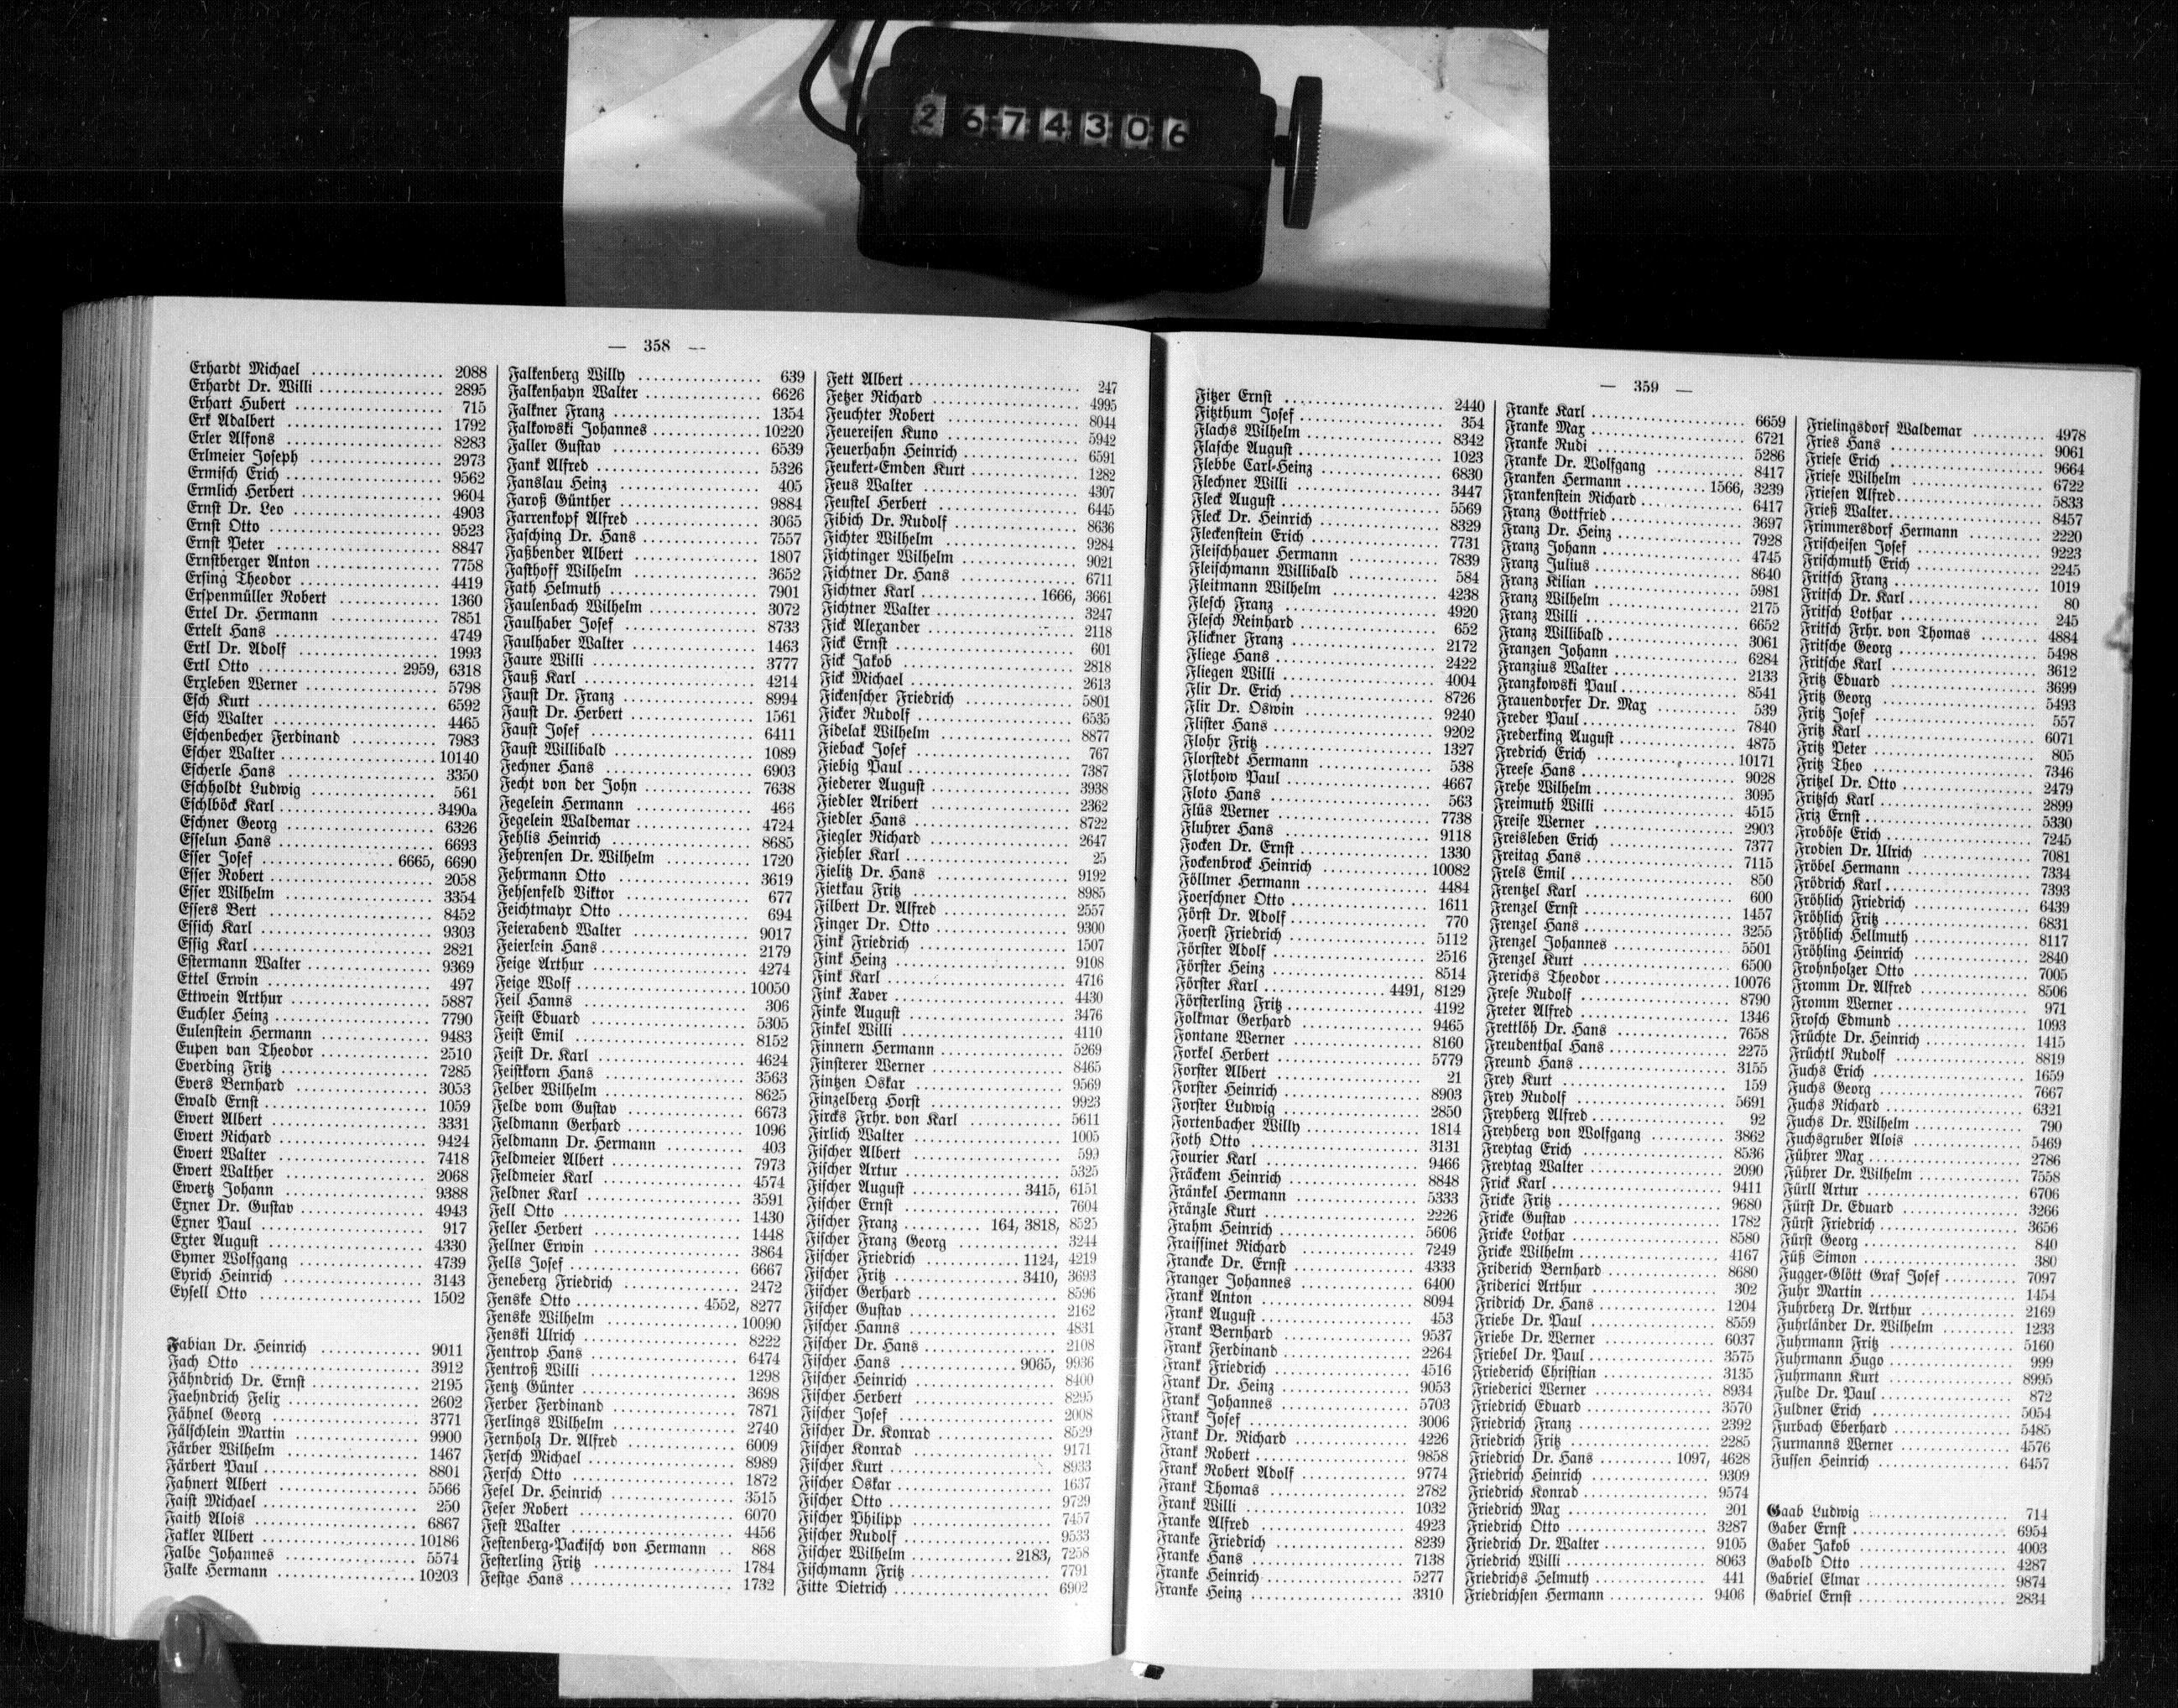 2674306
— 358 —
Erhardt Michael 2088
Erhardt Dr. Willi 2895
Erhart Hubert 715
Erk Adalbert 1792
Erler Alfons 8283
Erlmeier Joseph 2973
Ermisch Erich 9562
Ermlich Herbert 9604
Ernst Dr. Leo 4903
Ernst Otto 9523
Ernst Peter 8847
Ernstberger Anton 7758
Ersing Theodor 4419
Erspenmüller Robert 1360
Ertel Dr. Hermann 7851
Ertelt Hans 4749
Ertl Dr. Adolf 1993
Ertl Otto 2959, 6318
Erxleben Werner 5798
Esch Kurt 6592
Esch Walter 4465
Eschenbecher Ferdinand 7983
Escher Walter 10140
Escherle Hans 3350
Eschholdt Ludwig 561
Eschlböck Karl 3490a
Eschner Georg 6326
Esselun Hans 6693
Esser Josef 6665, 6690
Esser Robert 2058
Esser Wilhelm 3354
Essers Bert 8452
Essich Karl 9303
Essig Karl 2821
Estermann Walter 9369
Ettel Erwin 497
Ettwein Arthur 5887
Euchler Heinz 7790
Eulenstein Hermann 9483
Eupen van Theodor 2510
Everding Fritz 7285
Evers Bernhard 3053
Ewald Ernst 1059
Ewert Albert 3331
Ewert Richard 9424
Ewert Walter 7418
Ewert Walther 2068
Ewertz Johann 9388
Exner Dr. Gustav 4943
Exner Paul 917
Exter August 4330
Eymer Wolfgang 4739
Eyrich Heinrich 3143
Eysell Otto 1502
Fabian Dr. Heinrich 9011
Fach Otto 3912
Fähndrich Dr. Ernst 2195
Faehndrich Felix 2602
Fähnel Georg 3771
Fälschlein Martin 9900
Färber Wilhelm 1467
Färbert Paul 8801
Fahnert Albert 5566
Faist Michael 250
Faith Alois 6867
Fakler Albert 10186
Falbe Johannes 5574
Falke Hermann 10203
Falkenberg Willy 639
Falkenhayn Walter 6626
Falkner Franz 1354
Falkowski Johannes 10220
Faller Gustav 6539
Fank Alfred 5326
Fanslau Heinz 405
Faroß Günther 9884
Farrenkopf Alfred 3065
Fasching Dr. Hans 7557
Faßbender Albert 1807
Fasthoff Wilhelm 3652
Fath Helmuth 7901
Faulenbach Wilhelm 3072
Faulhaber Josef 8733
Faulhaber Walter 1463
Faure Willi 3777
Fauß Karl 4214
Faust Dr. Franz 8994
Faust Dr. Herbert 1561
Faust Josef 6411
Faust Willibald 1089
Fechner Hans 6903
Fecht von der John 7638
Fegelein Hermann 466
Fegelein Waldemar 4724
Fehlis Heinrich 8685
Fehrensen Dr. Wilhelm 1720
Fehrmann Otto 3619
Fehsenfeld Viktor 677
Feichtmayr Otto 694
Feierabend Walter 9017
Feierlein Hans 2179
Feige Arthur 4274
Feige Wolf 10050
Feil Hanns 306
Feist Eduard 5305
Feist Emil 8152
Feist Dr. Karl 4624
Feistkorn Hans 3563
Felber Wilhelm 8625
Felde vom Gustav 6673
Feldmann Gerhard 1096
Feldmann Dr. Hermann 403
Feldmeier Albert 7973
Feldmeier Karl 4574
Feldner Karl 3591
Fell Otto 1430
Feller Herbert 1448
Fellner Erwin 3864
Fells Josef 6667
Feneberg Friedrich 2472
Fenske Otto 4552, 8277
Fenske Wilhelm 10090
Fenski Ulrich 8222
Fentrop Hans 6474
Fentroß Willi 1298
Fentz Günter 3698
Ferber Ferdinand 7871
Ferlings Wilhelm 2740
Fernholz Dr. Alfred 6009
Fersch Michael 8989
Fersch Otto 1872
Fesel Dr. Heinrich 3515
Feser Robert 6070
Fest Walter 4456
Festenberg-Packisch von Hermann 868
Festerling Fritz 1784
Festge Hans 1732
Fett Albert 247
Fetzer Richard 4995
Feuchter Robert 8044
Feuereisen Kuno 5942
Feuerhahn Heinrich 6591
Feukert-Emden Kurt 1282
Feus Walter 4307
Feustel Herbert 6445
Fibich Dr. Rudolf 8636
Fichter Wilhelm 9284
Fichtinger Wilhelm 9021
Fichtner Dr. Hans 6711
Fichtner Karl 1666, 3661
Fichtner Walter 3247
Fick Alexander 2118
Fick Ernst 601
Fick Jakob 2818
Fick Michael 2613
Fickenscher Friedrich 5801
Ficker Rudolf 6535
Fidelak Wilhelm 8877
Fieback Josef 767
Fiebig Paul 7387
Fiederer August 3938
Fiedler Aribert 2362
Fiedler Hans 8722
Fiegler Richard 2647
Fiehler Karl 25
Fielitz Dr. Hans 9192
Fietkau Fritz 8985
Filbert Dr. Alfred 2557
Finger Dr. Otto 9300
Fink Friedrich 1507
Fink Heinz 9108
Fink Karl 4716
Fink Xaver 4430
Finke August 3476
Finkel Willi 4110
Finnern Hermann 5269
Finsterer Werner 8465
Fintzen Oskar 9569
Finzelberg Horst 9923
Fircks Frhr. von Karl 5611
Firlich Walter 1005
Fischer Albert 599
Fischer Artur 5325
Fischer August 3415, 6151
Fischer Ernst 7604
Fischer Franz 164, 3818, 8525
Fischer Franz Georg 3244
Fischer Friedrich 1124, 4219
Fischer Fritz 3410, 3693
Fischer Gerhard 8596
Fischer Gustav 2162
Fischer Hanns 4831
Fischer Dr. Hans 2108
Fischer Hans 9065, 9936
Fischer Heinrich 8400
Fischer Herbert 8295
Fischer Josef 2008
Fischer Dr. Konrad 8529
Fischer Konrad 9171
Fischer Kurt 8933
Fischer Oskar 1637
Fischer Otto 9729
Fischer Philipp 7457
Fischer Rudolf 9533
Fischer Wilhelm 2183, 7258
Fischmann Fritz 7791
Fitte Dietrich 6902
— 359 —
Fitzer Ernst 2440
Fitzthum Josef 354
Flachs Wilhelm 8342
Flasche August 1023
Flebbe Carl-Heinz 6830
Flechner Willi 3447
Fleck August 5569
Fleck Dr. Heinrich 8329
Fleckenstein Erich 7731
Fleischhauer Hermann 7839
Fleischmann Willibald 584
Fleitmann Wilhelm 4238
Flesch Franz 4920
Flesch Reinhard 652
Flickner Franz 2172
Fliege Hans 2422
Fliegen Willi 4004
Flir Dr. Erich 8726
Flir Dr. Oswin 9240
Flister Hans 9202
Flohr Fritz 1327
Florstedt Hermann 538
Flothow Paul 4667
Floto Hans 563
Flüs Werner 7738
Fluhrer Hans 9118
Focken Dr. Ernst 1330
Fockenbrock Heinrich 10082
Föllmer Hermann 4484
Foerschner Otto 1611
Först Dr. Adolf 770
Foerst Friedrich 5112
Förster Adolf 2516
Förster Heinz 8514
Förster Karl 4491, 8129
Försterling Fritz 4192
Folkmar Gerhard 9465
Fontane Werner 8160
Forkel Herbert 5779
Forster Albert 21
Forster Heinrich 8903
Forster Ludwig 2850
Fortenbacher Willy 1814
Foth Otto 3131
Fourier Karl 9466
Fräckem Heinrich 8848
Fränkel Hermann 5333
Fränzle Kurt 2226
Frahm Heinrich 5606
Fraissinet Richard 7249
Francke Dr. Ernst 4333
Franger Johannes 6400
Frank Anton 8094
Frank August 453
Frank Bernhard 9537
Frank Ferdinand 2264
Frank Friedrich 4516
Frank Dr. Heinz 9053
Frank Johannes 5703
Frank Josef 3006
Frank Dr. Richard 4226
Frank Robert 9858
Frank Robert Adolf 9774
Frank Thomas 2782
Frank Willi 1032
Franke Alfred 4923
Franke Friedrich 8239
Franke Hans 7138
Franke Heinrich 5277
Franke Heinz 3310
Franke Karl 6659
Franke Max 6721
Franke Rudi 5286
Franke Dr. Wolfgang 8417
Franken Hermann 1566, 3239
Frankenstein Richard 6417
Franz Gottfried 3697
Franz Dr. Heinz 7928
Franz Johann 4745
Franz Julius 8640
Franz Kilian 5981
Franz Wilhelm 2175
Franz Willi 6652
Franz Willibald 3061
Franzen Johann 6284
Franzius Walter 2133
Franzkowski Paul 8541
Frauendorfer Dr. Max 539
Freder Paul 7840
Frederking August 4875
Fredrich Erich 10171
Freese Hans 9028
Frehe Wilhelm 3095
Freimuth Willi 4515
Freise Werner 2903
Freisleben Erich 7377
Freitag Hans 7115
Frels Emil 850
Frentzel Karl 600
Frenzel Ernst 1457
Frenzel Hans 3255
Frenzel Johannes 5501
Frenzel Kurt 6500
Frerichs Theodor 10076
Frese Rudolf 8790
Freter Alfred 1346
Frettlöh Dr. Hans 7658
Freudenthal Hans 2275
Freund Hans 3155
Frey Kurt 159
Frey Rudolf 5691
Freyberg Alfred 92
Freyberg von Wolfgang 3862
Freytag Erich 8536
Freytag Walter 2090
Frick Karl 9411
Fricke Fritz 9680
Fricke Gustav 1782
Fricke Lothar 8580
Fricke Wilhelm 4167
Friderich Bernhard 8680
Friderici Arthur 302
Fridrich Dr. Hans 1204
Friebe Dr. Paul 8559
Friebe Dr. Werner 6037
Friebel Dr. Paul 3575
Friederich Christian 3135
Friederici Werner 8934
Friedrich Eduard 3570
Friedrich Franz 2392
Friedrich Fritz 2285
Friedrich Dr. Hans 1097, 4628
Friedrich Heinrich 9309
Friedrich Konrad 9574
Friedrich Max 201
Friedrich Otto 3287
Friedrich Dr. Walter 9105
Friedrich Willi 8063
Friedrichs Helmuth 441
Friedrichsen Hermann 9406
Frielingsdorf Waldemar 4978
Fries Hans 9061
Friese Erich 9664
Friese Wilhelm 6722
Friesen Alfred 5833
Frieß Walter 8457
Frimmersdorf Hermann 2220
Frischeisen Josef 9223
Frischmuth Erich 2245
Fritsch Franz 1019
Fritsch Dr. Karl 80
Fritsch Lothar 245
Fritsch Frhr. von Thomas 4884
Fritsche Georg 5498
Fritsche Karl 3612
Fritz Eduard 3699
Fritz Georg 5493
Fritz Josef 557
Fritz Karl 6071
Fritz Peter 805
Fritz Theo 7346
Fritzel Dr. Otto 2479
Fritzsch Karl 2899
Friz Ernst 5330
Froböse Erich 7245
Frodien Dr. Ulrich 7081
Fröbel Hermann 7334
Frödrich Karl 7393
Fröhlich Friedrich 6439
Fröhlich Fritz 6831
Fröhlich Hellmuth 8117
Fröhling Heinrich 2840
Frohnholzer Otto 7005
Fromm Dr. Alfred 8506
Fromm Werner 971
Frosch Edmund 1093
Früchte Dr. Heinrich 1415
Früchtl Rudolf 8819
Fuchs Erich 1659
Fuchs Georg 7667
Fuchs Richard 6321
Fuchs Dr. Wilhelm 790
Fuchsgruber Alois 5469
Führer Max 2786
Führer Dr. Wilhelm 7558
Fürll Artur 6706
Fürst Dr. Eduard 3266
Fürst Friedrich 3656
Fürst Georg 840
Füß Simon 380
Fugger-Glött Graf Josef 7097
Fuhr Martin 1454
Fuhrberg Dr. Arthur 2169
Fuhrländer Dr. Wilhelm 1233
Fuhrmann Fritz 5160
Fuhrmann Hugo 999
Fuhrmann Kurt 8995
Fulde Dr. Paul 872
Fuldner Erich 5054
Furbach Eberhard 5485
Furmanns Werner 4576
Fussen Heinrich 6457
Gaab Ludwig 714
Gaber Ernst 6954
Gaber Jakob 4003
Gabold Otto 4287
Gabriel Elmar 9874
Gabriel Ernst 2834